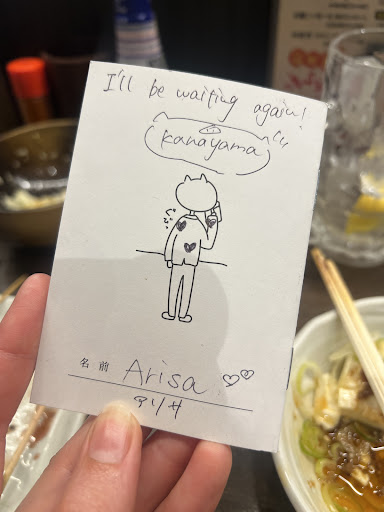 I'll be waiting again!
Kanayama
名前 Arisa
アリサ